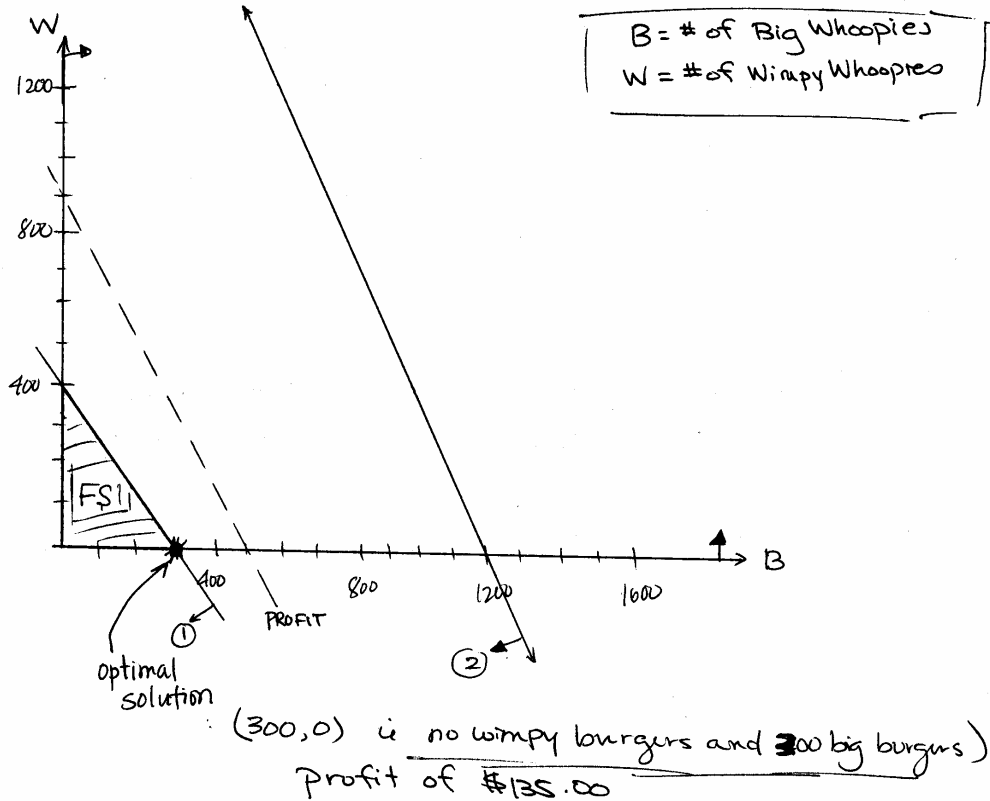 W
B = # of Big Whoopies
W = # of Wimpy Whoopies
1200
800
400
FS1
B
400
800
1200
1600
PROFIT
①
②
optimal
solution
: (300,0) ie no wimpy burgers and 300 big burgers)
profit of $135.00